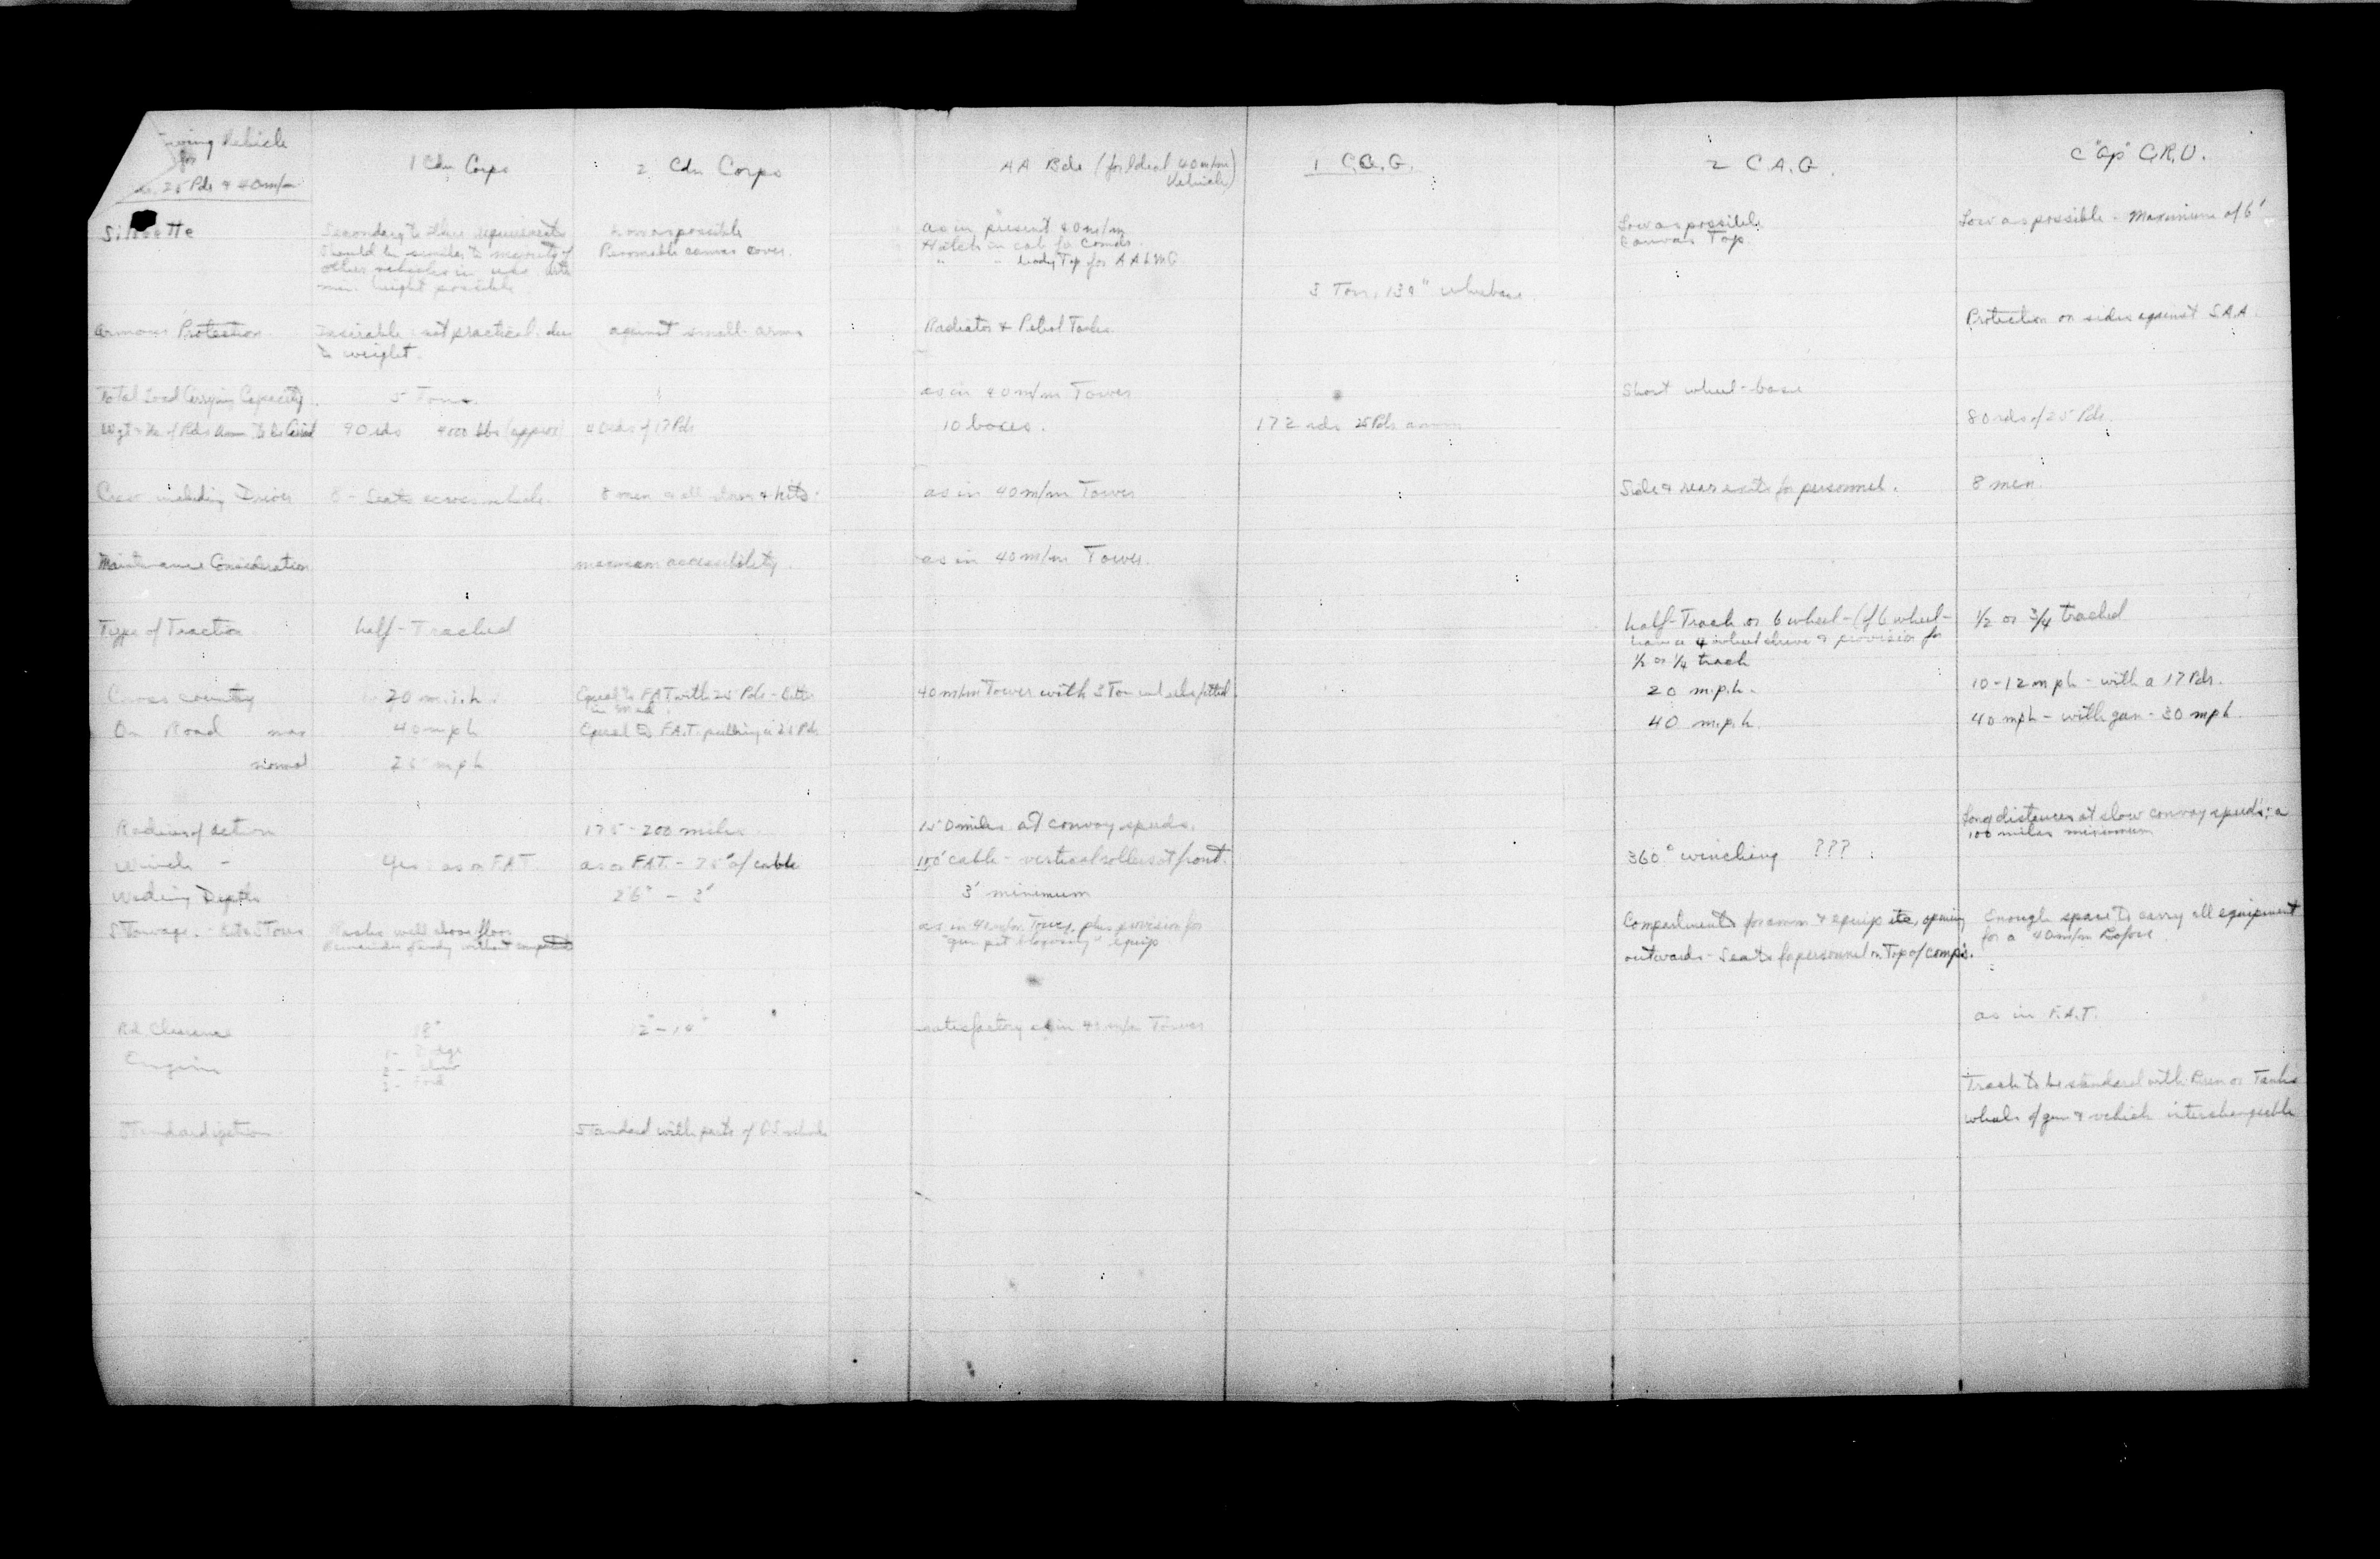 Towing Vehicle
for
25 Pdr & 40 m/m
1 Cdn Corps
2 Cdn Corps
AA Bde (for Ideal 40 m/m
Vehicle)
1 C.A.G.
2 C.A.G.
C "Gp" C.R.U.
Silhouette
Secondary to other requirements
Should be similar to majority of
other vehicles in use with
min. height possible
Low as possible
Removable canvas cover.
as in present 40 m/m
Hatch in cab for Comdr.
" " body Top for AALMG
3 Ton, 134" wheelbase
Low as possible
Canvas Top.
Low as possible - Maximum of 6'
Armour Protection
Desirable - not practical due
to weight.
against small arms
Radiator & Petrol Tanks.
Protection on sides against S.A.A.
Total Load Carrying Capacity.
5 Tons.
as in 40 m/m Tower
Short wheel-base
Wgt & No. of Rds Amm To be Carried
90 rds 4000 lbs (approx)
40 rds of 17 Pdr
10 boxes.
172 rds 25 Pdr amm
80 rds of 25 Pdr.
Crew including Driver
8 - Seats across vehicle.
8 men & all stores & kits.
as in 40 m/m Tower
Side & rear seats for personnel.
8 men.
Maintenance Consideration
maximum accessibility.
as in 40 m/m Tower.
Type of Traction
half-Tracked
half-Track or 6 wheel - (if 6 wheel -
have a 4 wheel drive & provision for
1/2 or 1/4 track
1/2 or 3/4 tracked
Cross country
20 m.p.h.
Equal to FAT with 25 Pdr - better
in mud.
40 m/m Tower with 3 Ton wheels fitted.
20 m.p.h.
10-12 mph - with a 17 Pdr.
On Road max
40 mph
Equal to F.A.T. pulling a 25 Pdr
40 m.p.h.
40 mph - with gun - 30 mph.
normal
25 mph
Radius of action
175 - 200 miles.
150 miles at convoy speeds.
Long distances at slow convoy speeds; a
100 miles minimum
Winch -
Yes: as on F.A.T.
as on F.A.T. - 75' of cable
150' cable - vertical rollers at front.
360° winching ???
Wading Depth
2'6" - 3'
3' minimum
Stowage - Kit & Stores
Racks well above floor
Remainder of body without compartments
as in 40 m/m Tower, plus provision for
"gun pit" equip
Compartments for amm & equip etc, opening
outwards - Seats for personnel on Top of comps.
Enough space to carry all equipment
for a 40 m/m Bofors
Rd. Clearance
18"
12" - 14"
satisfactory as in 40 m/m Tower
as in F.A.T.
Engine
1 - Dodge
2 - Chev
3 - Ford
Track to be standard with Bren or Tanks
wheels of gun & vehicle interchangeable
Standardization
Standard with parts of vehicles